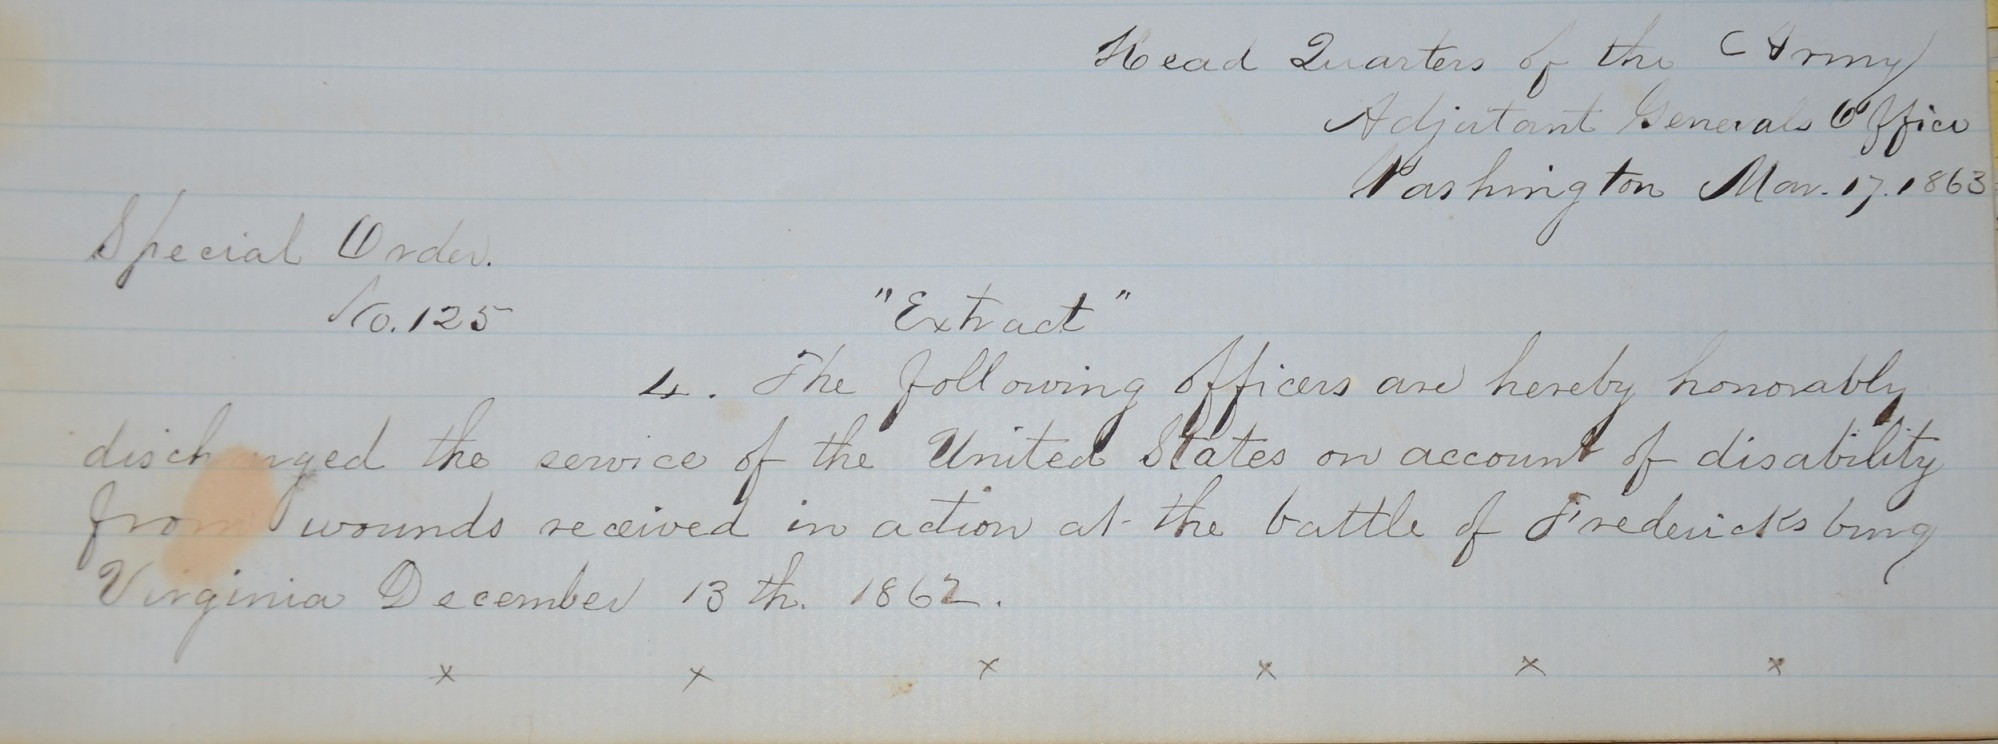 Head Quarters of the Army
Adjutant Generals Office
Washington Mar. 17. 1863
Special Order.
No. 125 "Extract"
4. The following officers are hereby honorably
discharged the service of the United States on account of disability
from wounds received in action at the battle of Fredericksburg
Virginia December 13th. 1862.
x x x x x x